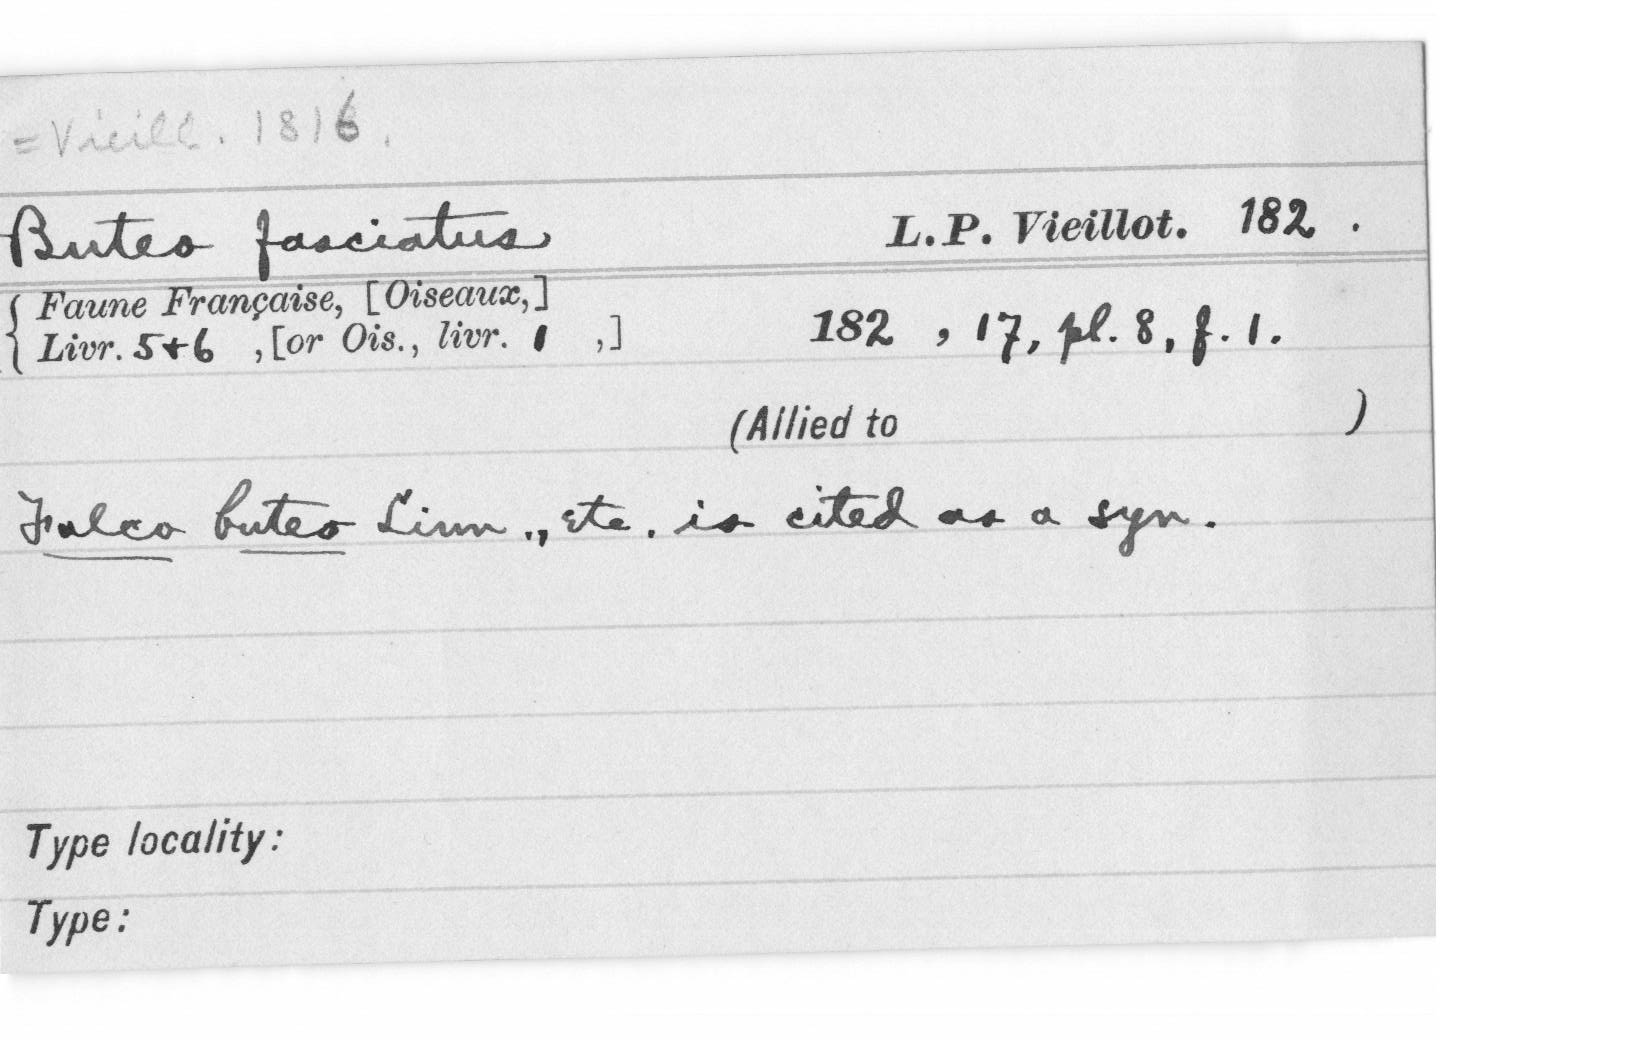 = Vieill. 1816.
Buteo fasciatus L. P. Vieillot. 182 .
Faune Française, [Oiseaux,]
Livr. 5+6 , [or Ois., livr. 1 ,] 182 , 17, pl. 8, f. 1.
(Allied to )
Falco buteo Linn., etc. is cited as a syn.
Type locality:
Type: